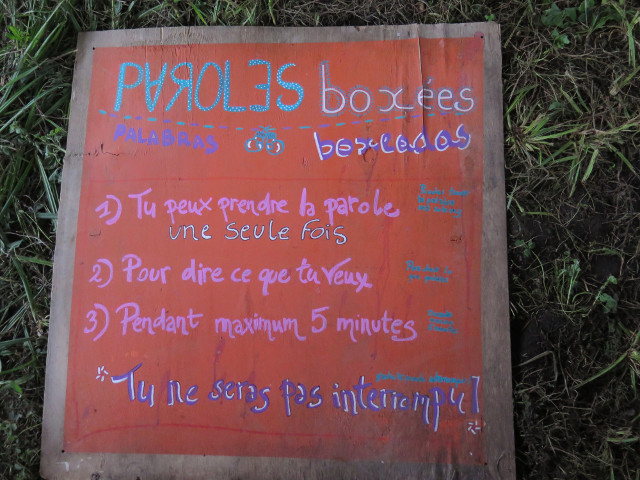 PAROLES boxées
PALABRAS boxeadas
1) Tu peux prendre la parole
une seule fois
2) Pour dire ce que tu veux
3) Pendant maximum 5 minutes
Tu ne seras pas interrompu!